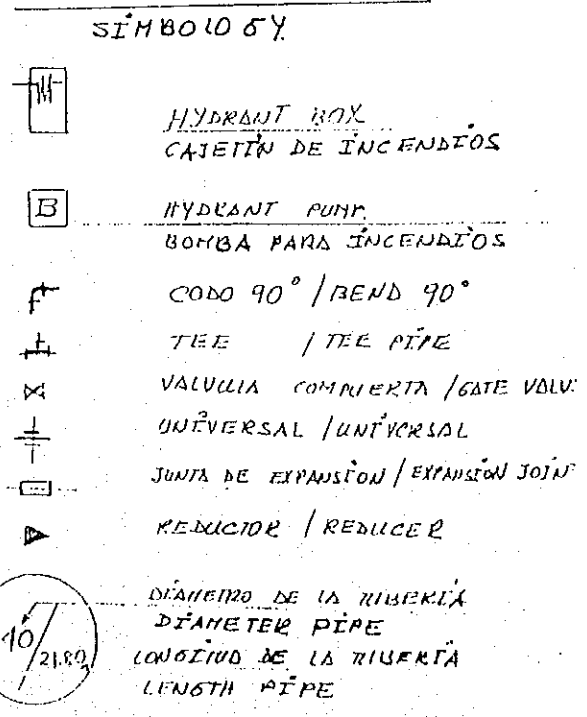 SÍMBOLOGY
HYDRANT BOX
CAJETÍN DE ÍNCENDÍOS
B
HYDRANT PUMP.
BOMBA PARA ÍNCENDÍOS
CODO 90° / BEND 90°
TEE / TEE PÍPE
VALVULA COMPUERTA / GATE VALV.
UNÍVERSAL / UNÍVERSAL
JUNTA DE EXPANSÍON / EXPANSÍON JOÍN
REDUCTOR / REDUCER
DÍAMETRO DE LA TUBERÍA
DÍAMETER PÍPE
10
21.80
LONGÍTUD DE LA TUBERÍA
LENGTH PÍPE